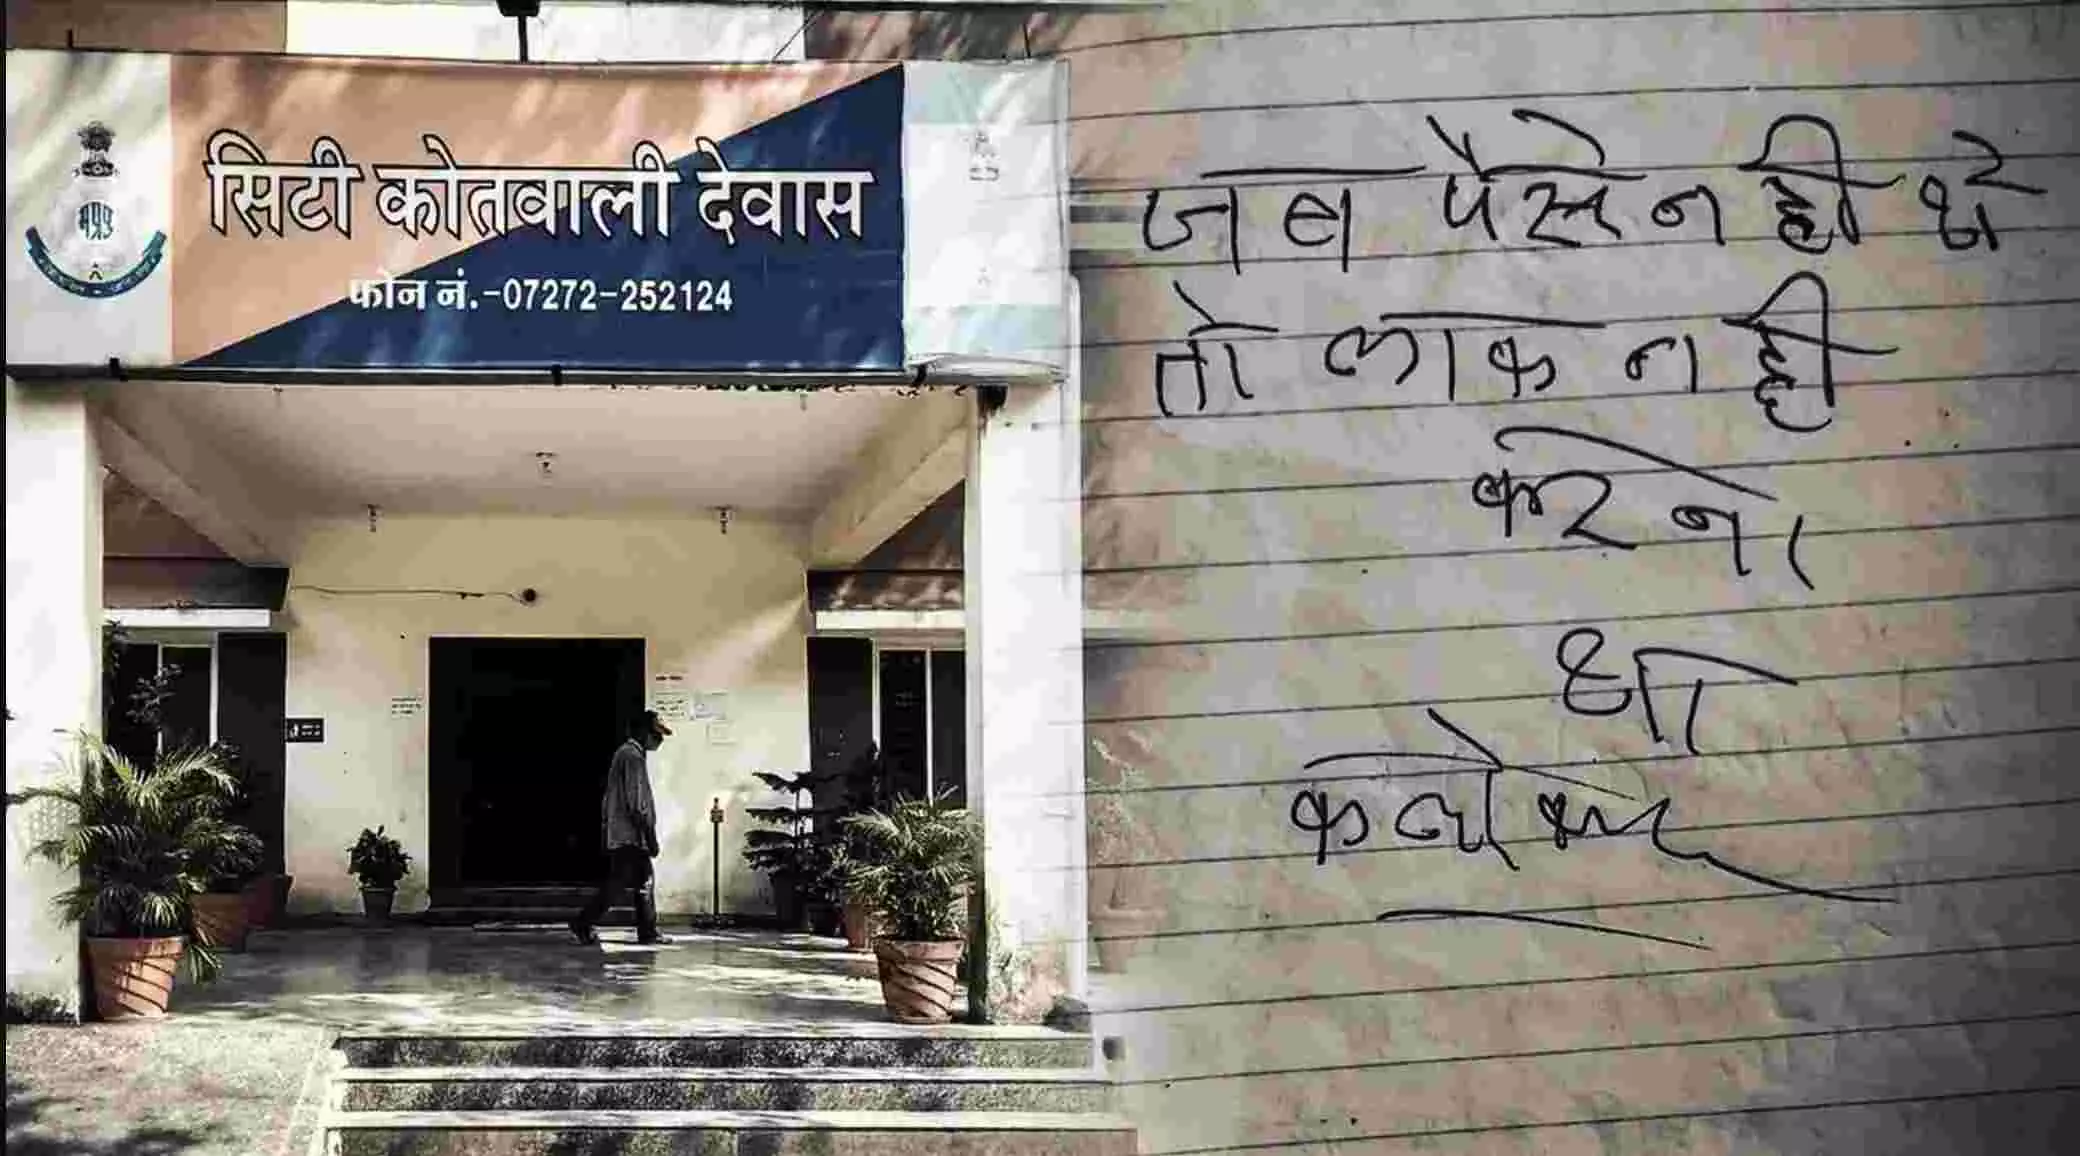 सिटी कोतवाली देवास
फोन नं.-07272-252124
मप्रपु
जब पैसे नही थे
तो लाक नही
करेना
था
कलेक्टर